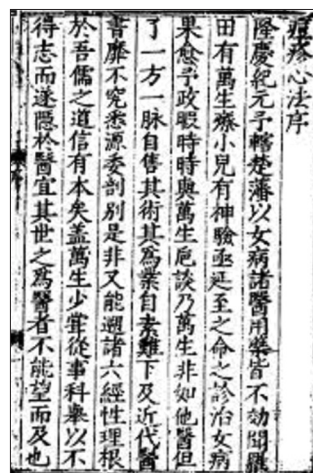 痘疹心法序
隆慶紀元予轄楚藩以女病諸醫用藥皆不効聞羅
田有萬生療小兒有神驗亟延至之命之診治女病
果愈予政暇時時與萬生巵談乃萬生非如他醫但
了一方一脉自售其術其為業自素難下及近代醫
書靡不究悉源委剖別是非又能遡諸六經性理根
於吾儒之道信有本矣盖萬生少嘗從事科舉以不
得志而遂隱於醫宜其世之為醫者不能望而及也